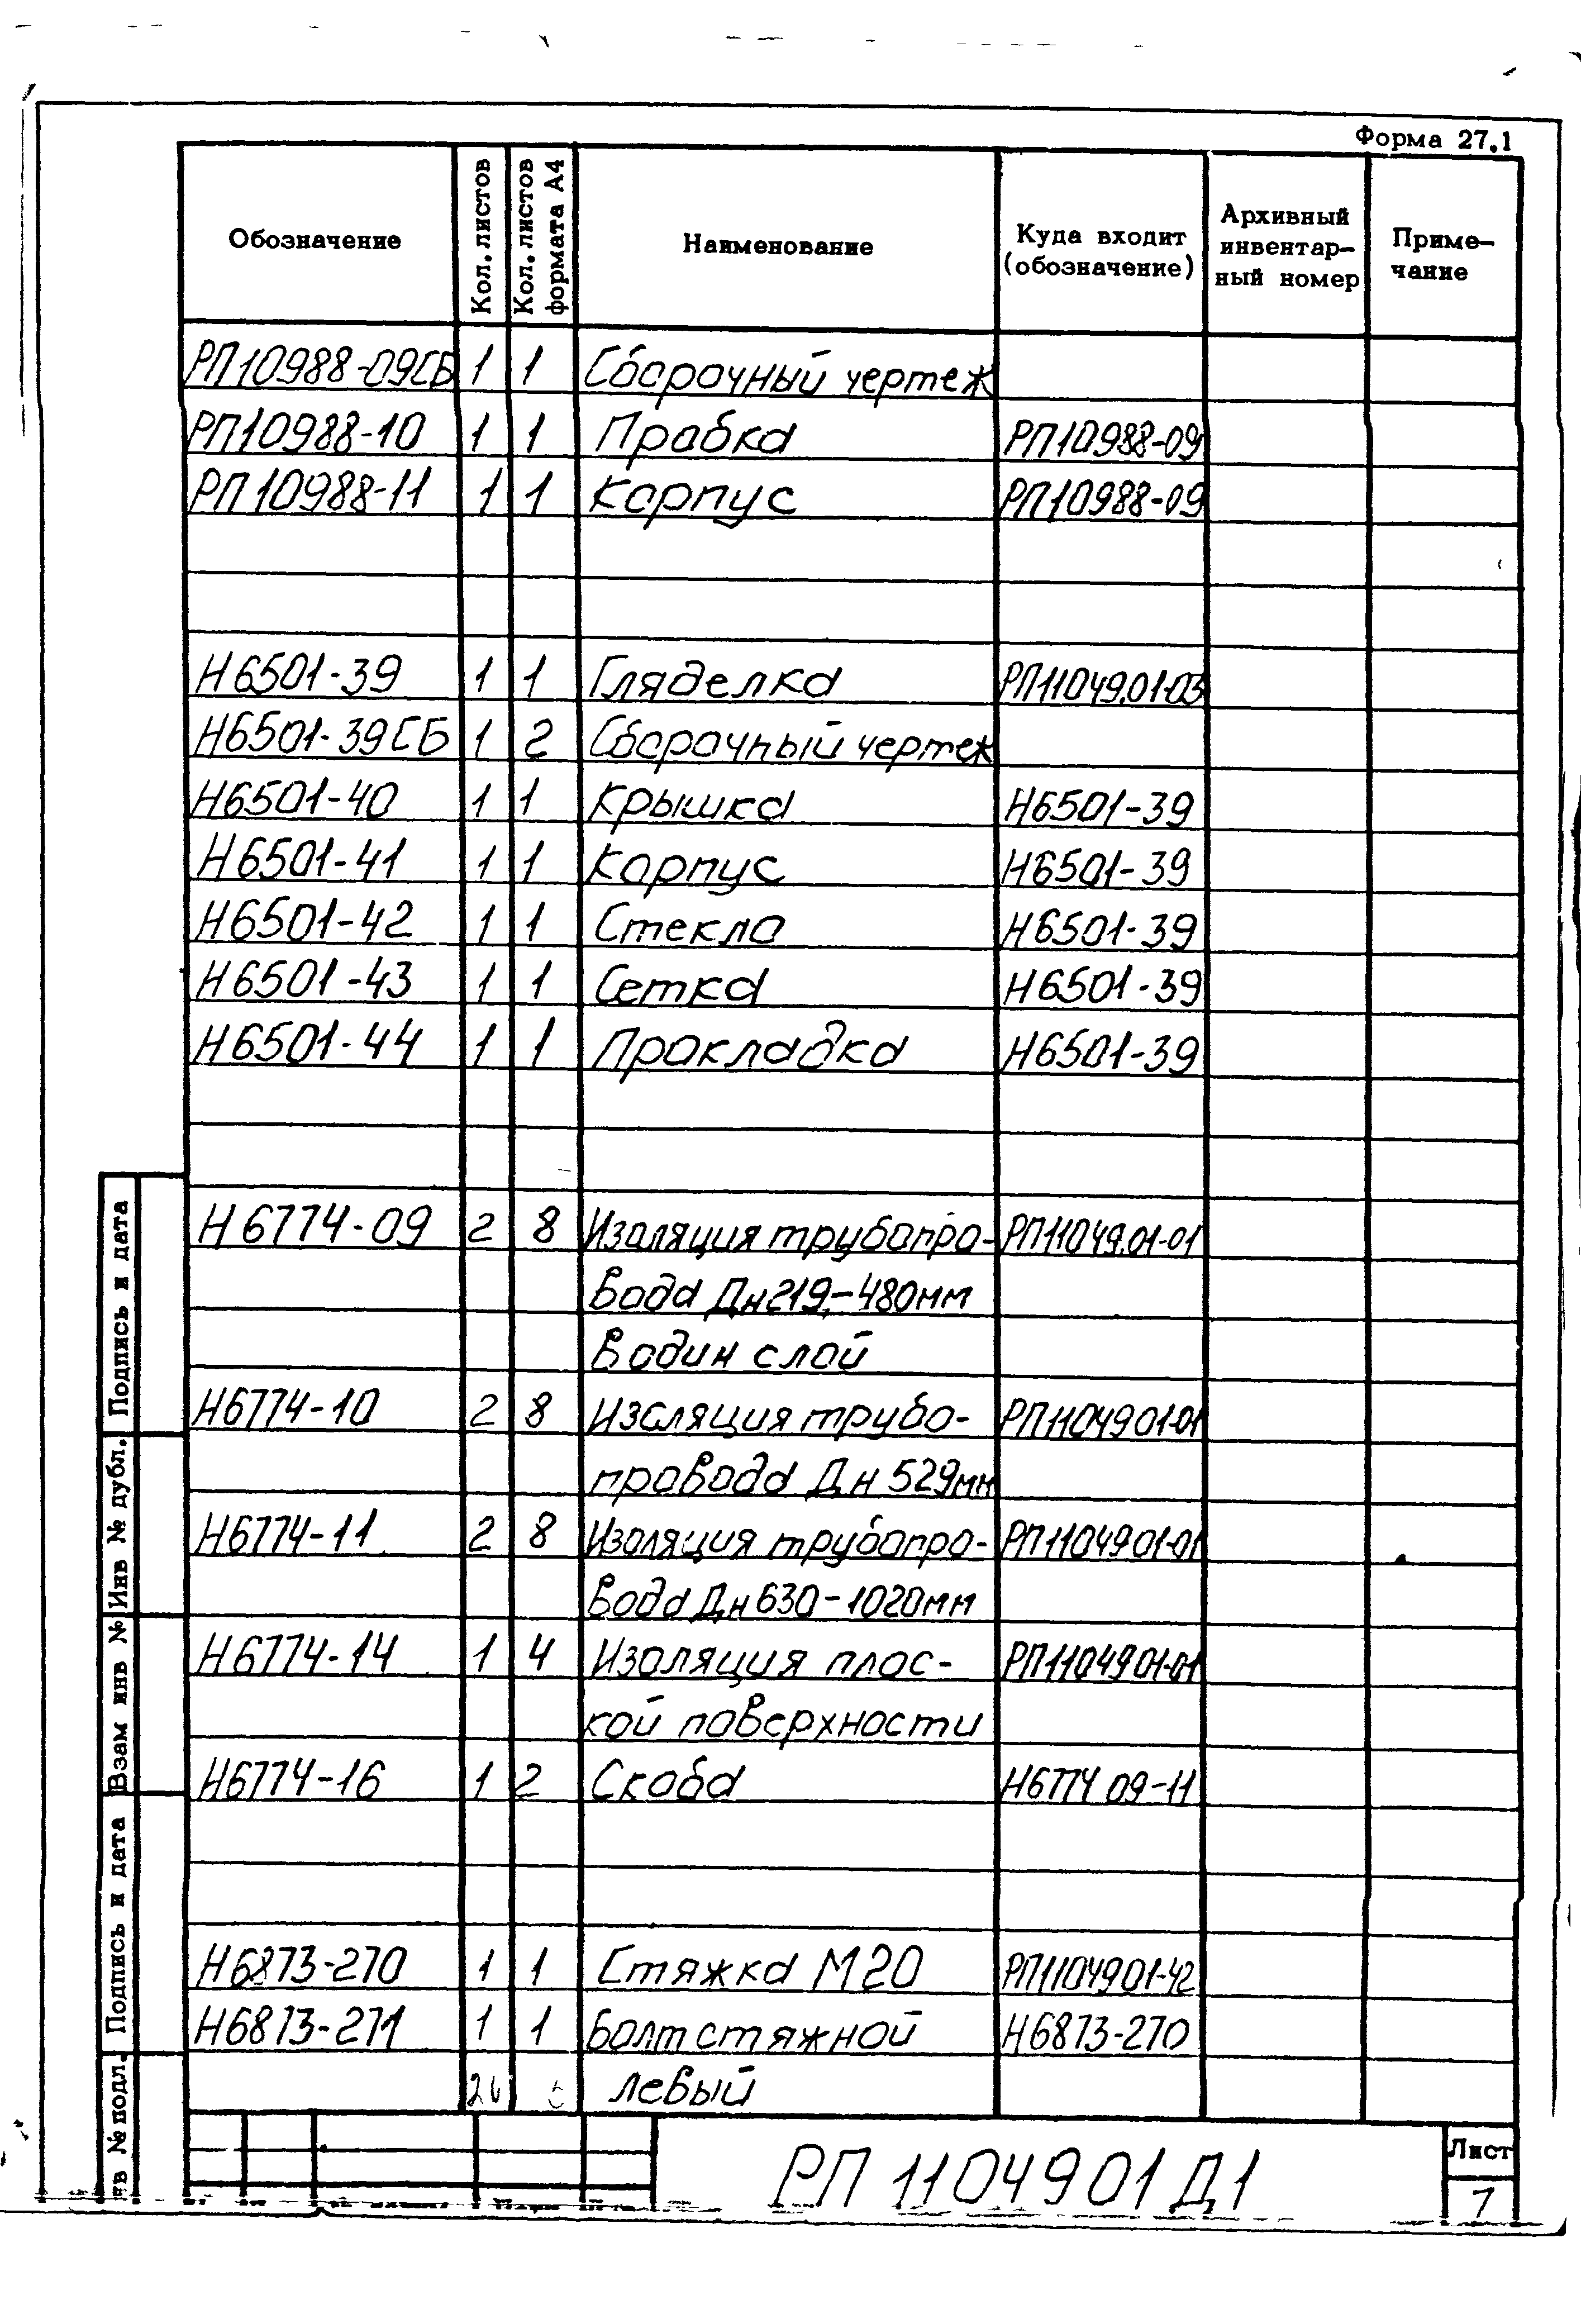 Форма 27.1
Обозначение
Кол. листов
Кол. листов формата А4
Наименование
Куда входит (обозначение)
Архивный инвентар-
ный номер
Приме-
чание
РП10988-09СБ 1 1 Сборочный чертеж
РП10988-10 1 1 Пробка РП10988-09
РП10988-11 1 1 Корпус РП10988-09
Н6501-39 1 1 Гляделка РП11049.01-03
Н6501-39СБ 1 2 Сборочный чертеж
Н6501-40 1 1 Крышка Н6501-39
Н6501-41 1 1 Корпус Н6501-39
Н6501-42 1 1 Стекло Н6501-39
Н6501-43 1 1 Сетка Н6501-39
Н6501-44 1 1 Прокладка Н6501-39
Н6774-09 2 8 Изоляция трубопро- РП11049.01-01
вода Дн219-480мм
в один слой
Н6774-10 2 8 Изоляция трубо- РП1104901-01
провода Дн 529мм
Н6774-11 2 8 Изоляция трубопро- РП1104901-01
вода Дн630-1020мм
Н6774-14 1 4 Изоляция плос- РП1104901-01
кой поверхности
Н6774-16 1 2 Скоба Н6774 09-11
Н6873-270 1 1 Стяжка М20 РП1104901-42
Н6873-271 1 1 Болт стяжной Н6873-270
левый
Подпись и дата
Инв № дубл.
Взам инв №
Подпись и дата
№ подл.
РП 1104901 Д1
Лист
7